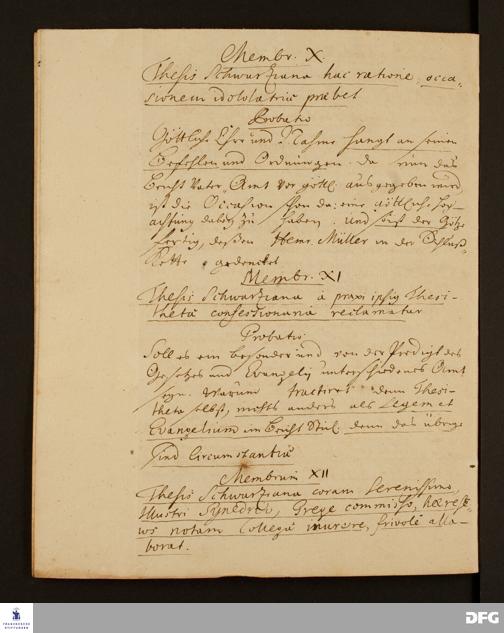 Membr. X.
Thesis Schwartziana hac ratione occa-
sionem idololatriae praebet
Probatio
Göttliche Ehre und Nahme hangt an seinen
Befehlen und Ordnungen. Da nun das
Beicht Vater Amt vor göttl. ausgegeben wird
ist die Occasion schon da, eine göttliche
achtung dabey zu haben, und ist der Götze
fertig, deßen Henr. Müller in der Schluß-
Kette gedencket
Membr. XI
Thesis Schwartziana a praxi ipsius Thesi-
thetae confessionaria reclamatur
Probatio
Soll es ein besonder und von der Predigt des
Gesetzes und Evangelii unterschiedenes Amt
seyn. Warum tractiret denn Thesi-
theta selbst, nichts anders als Legem et
Evangelium im Beicht Stul, denn das übrige
sind Circumstantiae
Membrum XII
Thesis Schwartziana coram Serenissimo,
Illustri Synedrio, Grege commisso, haerese-
ws notam Collegae inurere, frivole alla-
borat.
FRANCKESCHE
STIFTUNGEN
DFG